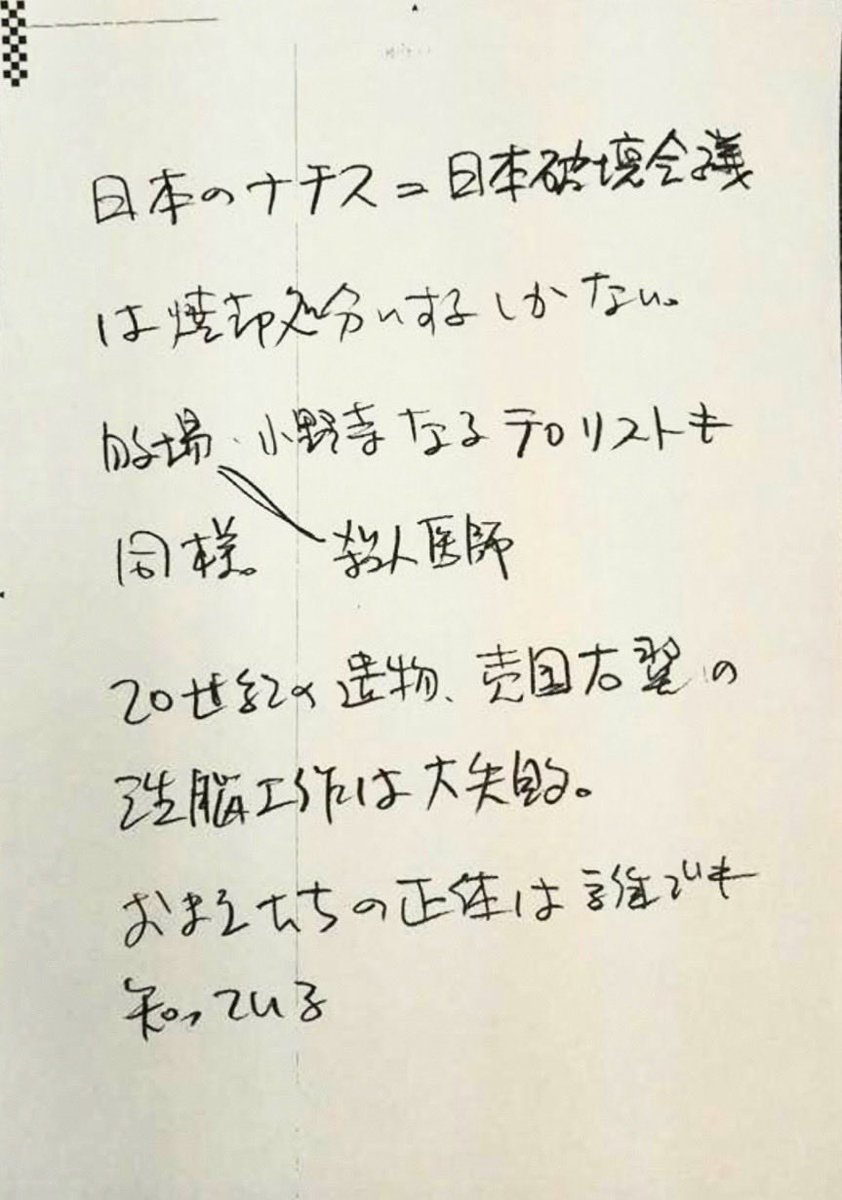 日本のナチス=日本破壊会議
は焼却処分にするしかない。
的場、小野寺なるテロリストも
同様。 殺人医師
20世紀の遺物、売国右翼の
洗脳工作は大失敗。
おまえたちの正体は誰でも
知っている